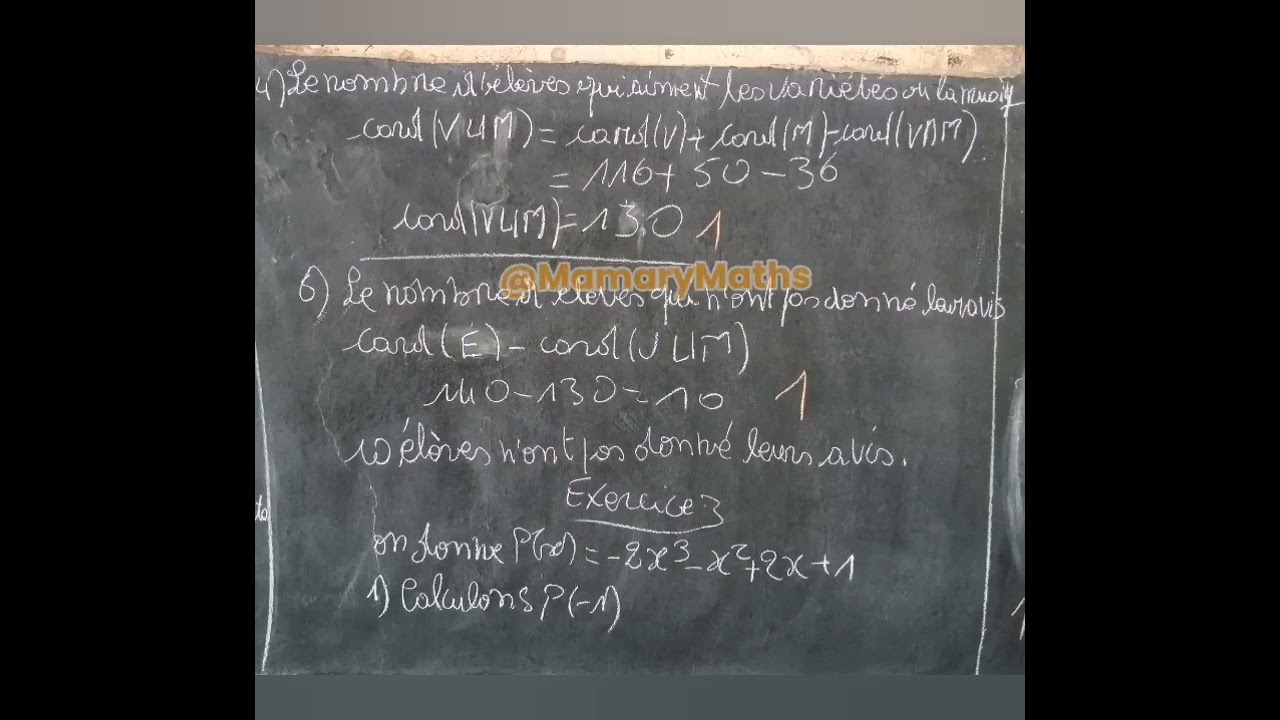 4) Le nombre d'élèves qui aiment les variétés ou la musiq
card(V∪M) = card(V) + card(M) - card(V∩M)
= 116 + 50 - 36
card(V∪M) = 130 1
@MamaryMaths
6) Le nombre d'élèves qui n'ont pas donné leur avis
card(E) - card(V∪M)
140 - 130 = 10 1
10 élèves n'ont pas donné leurs avis.
Exercice 3
on donne P(x) = -2x³ - x² + 2x + 1
1) Calculons P(-1)